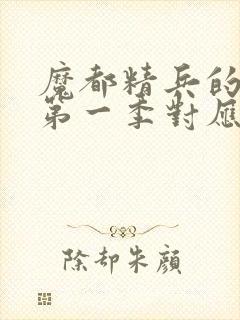 魔都精兵的
第一季對應
除却朱顏